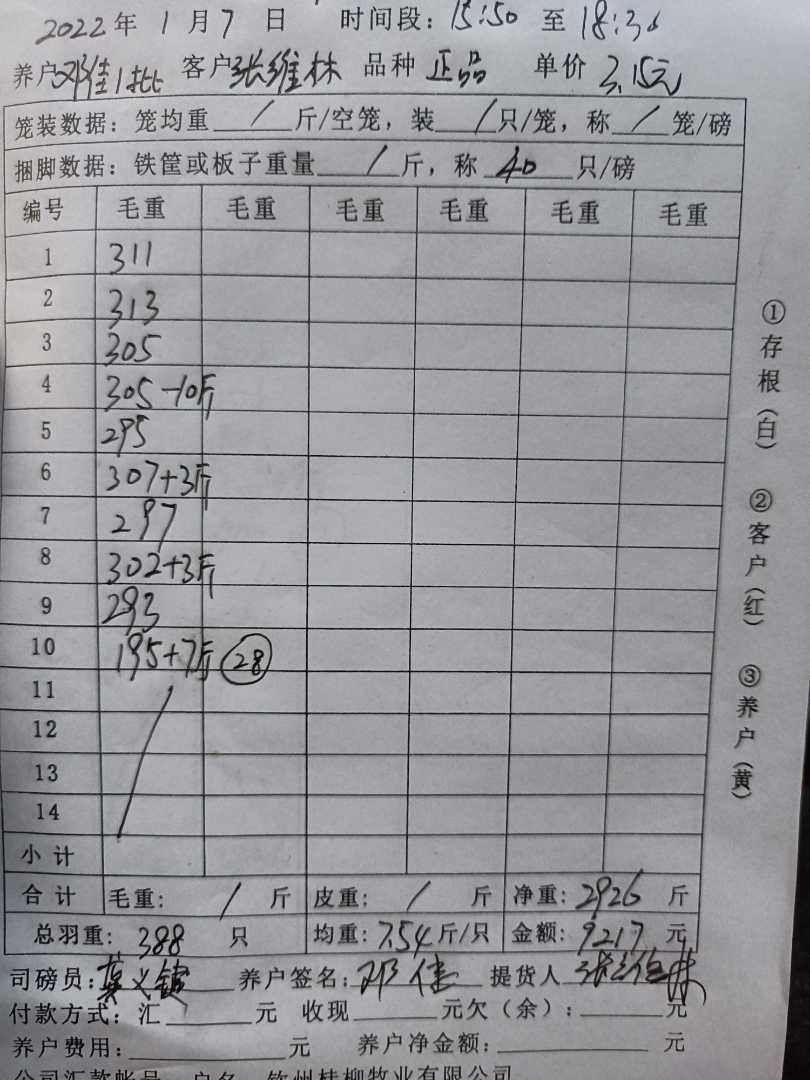 2022年 1月7日 时间段：15:50 至 18:36
养户邓佳1批 客户张维林 品种 正品 单价 3.15元
笼装数据：笼均重 / 斤/空笼，装 / 只/笼，称 / 笼/磅
捆脚数据：铁筐或板子重量 / 斤，称 40 只/磅
编号 毛重 毛重 毛重 毛重 毛重 毛重
1 311
2 313
3 305
4 305-10斤
5 295
6 307+3斤
7 297
8 302+3斤
9 293
10 195+7斤 28
11
12
13
14
小计
合计 毛重： / 斤 皮重： / 斤 净重：2926 斤
总羽重：388 只 均重：7.54斤/只 金额：9217元
司磅员：莫义 养户签名：邓佳 提货人 张维林
付款方式：汇 元 收现 元欠（余）： 元
养户费用： 元 养户净金额： 元
公司汇款帐号 户名 钦州桂柳牧业有限公司
①存根（白） ②客户（红） ③养户（黄）